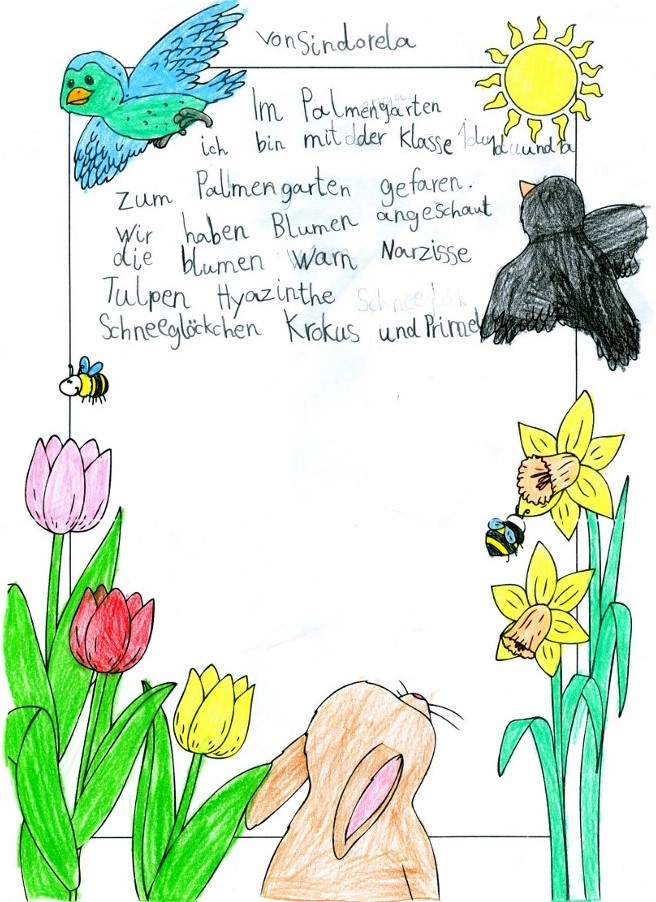 von Sindorela
Im Palmengarten
ich bin mit dder Klasse 1du 1d uund a
zum Palmengarten gefaren.
wir haben Blumen angeschaut
die blumen warn Narzisse
Tulpen Hyazinthe
Schneeglöckchen Krokus und Primel